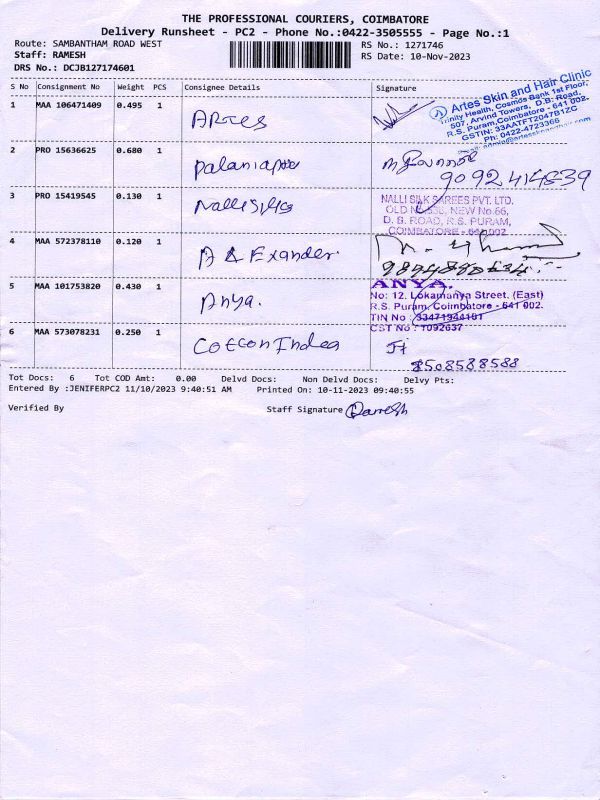 THE PROFESSIONAL COURIERS, COIMBATORE
Delivery Runsheet - PC2 - Phone No.:0422-3505555 - Page No.:1
Route: SAMBANTHAM ROAD WEST RS No.: 1271746
Staff: RAMESH RS Date: 10-Nov-2023
DRS No.: DCJB127174601
S No Consignment No Weight PCS Consignee Details Signature
1 MAA 106471409 0.495 1 Artes
Artes Skin and Hair Clinic
Trinity Health, Cosmos Bank 1st Floor,
507, Arvind Towers, D.B. Road,
R.S. Puram, Coimbatore - 641 002.
GSTIN: 33AATFT2047B1ZC
Ph: 0422-4723366
2 PRO 15636625 0.680 1
9092414839
3 PRO 15419545 0.130 1 Nalli Silks
NALLI SILK SAREES PVT. LTD.
OLD No. NEW No.66,
D. B. ROAD, R.S. PURAM,
COIMBATORE - 641 002
4 MAA 572378110 0.120 1 A & Exander.
5 MAA 101753820 0.430 1 Anya.
ANYA.
No: 12, Lokamanya Street, (East)
R.S. Puram, Coimbatore - 641 002.
TIN No : 33471944161
CST No : 1092637
6 MAA 573078231 0.250 1 Cotton Indea
8508588588
Tot Docs: 6 Tot COD Amt: 0.00 Delvd Docs: Non Delvd Docs: Delvy Pts:
Entered By :JENIFERPC2 11/10/2023 9:40:51 AM Printed On: 10-11-2023 09:40:55
Verified By Staff Signature Ramesh